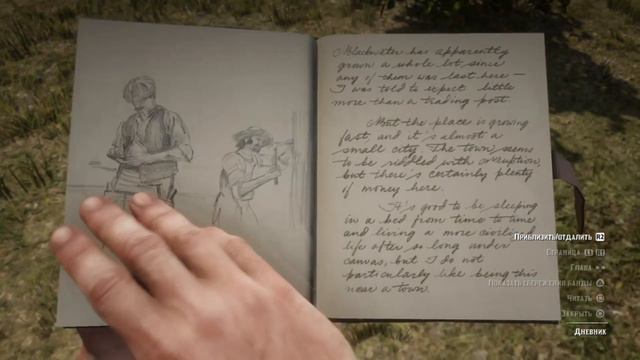 Blackwater has apparently
grown a whole lot since
any of them was last here –
I was told to expect little
more than a trading post.
But the place is growing
fast, and it's almost a
small city. The town seems
to be riddled with corruption,
but there's certainly plenty
of money here.
It's good to be sleeping
in a bed from time to time
and living a more civilized
life after so long under
canvas, but I do not
particularly like being this
near a town.
Приблизить/отдалить R2
Страница L1 R1
Глава
Показать сверженил банды
Читать
Закрыть
Дневник